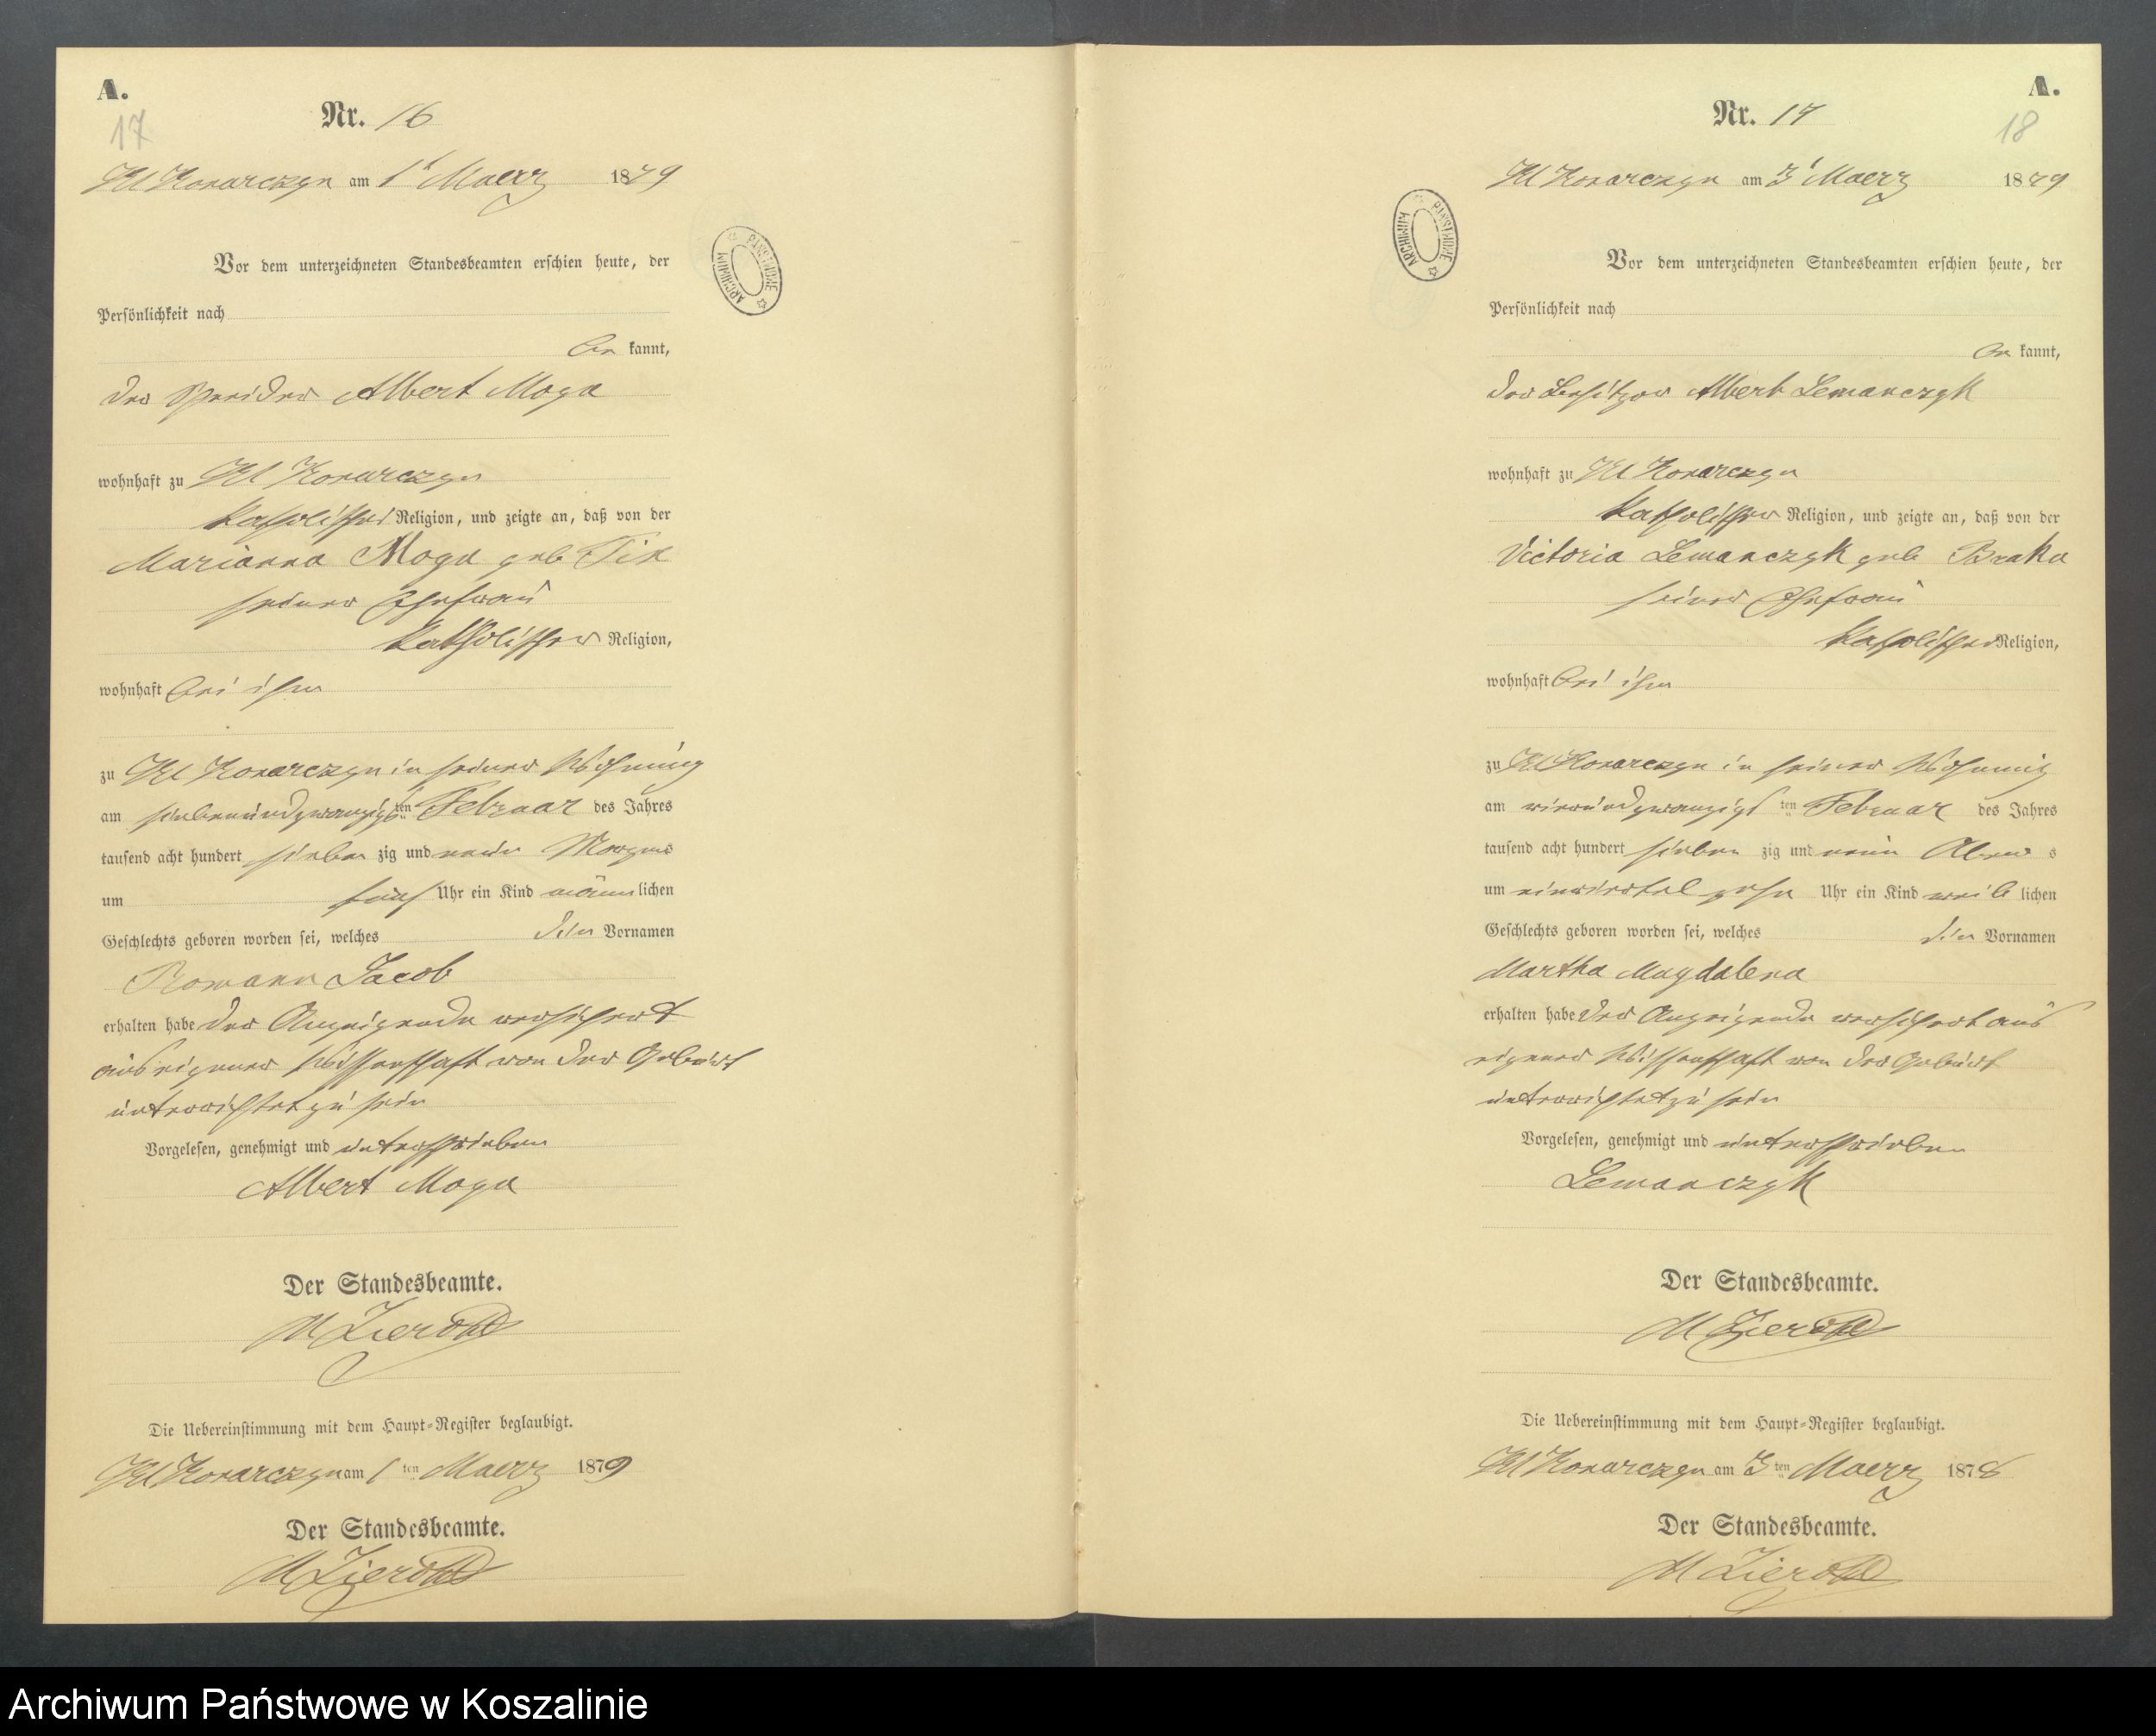 A.
17
Nr. 16
Kl Konarczyn am 1t Maerz 1879
Vor dem unterzeichneten Standesbeamten erschien heute, der
Persönlichkeit nach
be kannt,
der Albert Moga
wohnhaft zu Kl Konarczyn
katholischer Religion, und zeigte an, daß von der
Marianna Moga geb
seiner Ehefrau
katholischer Religion,
wohnhaft bei ihm
zu Kl Konarczyn in seiner Wohnung
am siebenundzwanzigsten Februar des Jahres
tausend acht hundert sieben zig und neun Morgens
um fünf Uhr ein Kind männlichen
Geschlechts geboren worden sei, welches den Vornamen
Romann Jacob
erhalten habe der Anzeigende versichert
aus eigener Wissenschaft von der Geburt
unterrichtet zu sein
Vorgelesen, genehmigt und unterschrieben
Albert Moga
Der Standesbeamte.
Die Uebereinstimmung mit dem Haupt-Register beglaubigt.
Kl Konarczyn am 1 ten Maerz 1879
Der Standesbeamte.
ARCHIWUM PAŃSTWOWE
A.
18
Nr. 17
Kl Konarczyn am 3t Maerz 1879
Vor dem unterzeichneten Standesbeamten erschien heute, der
Persönlichkeit nach
be kannt,
der Besitzer Albert Lemanczyk
wohnhaft zu Kl Konarczyn
katholischer Religion, und zeigte an, daß von der
Victoria Lemanczyk geb Braka
seiner Ehefrau
katholischer Religion,
wohnhaft bei ihm
zu Kl Konarczyn in seiner Wohnung
am vierundzwanzigs ten Februar des Jahres
tausend acht hundert sieben zig und neun Abend s
um einviertel zehn Uhr ein Kind weib lichen
Geschlechts geboren worden sei, welches den Vornamen
Martha Magdalena
erhalten habe der Anzeigende versichert aus
eigener Wissenschaft von der Geburt
unterrichtet zu sein
Vorgelesen, genehmigt und unterschrieben
Lemanczyk
Der Standesbeamte.
Die Uebereinstimmung mit dem Haupt-Register beglaubigt.
Kl Konarczyn am 3 ten Maerz 1878
Der Standesbeamte.
ARCHIWUM PAŃSTWOWE
Archiwum Państwowe w Koszalinie